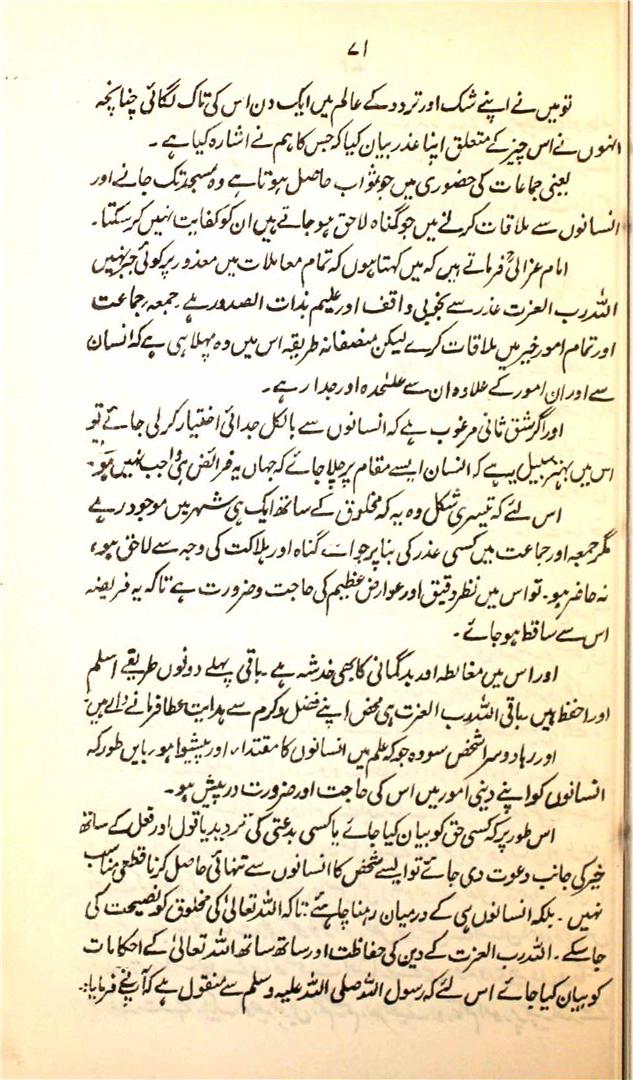 ۷۱
تو میں نے اپنے شک اور تردد کے عالم میں ایک دن اس کی تاک لگائی چنانچہ
انہوں نے اس چیز کے متعلق اپنا عذر بیان کیا کہ جس کا ہم نے اشارہ کیا ہے ۔
یعنی جماعات کی حضوری میں جو ثواب حاصل ہوتا ہے وہ مسجد تک جانے اور
انسانوں سے ملاقات کرنے میں جو گناہ لاحق ہو جاتے ہیں ان کو کفایت نہیں کر سکتا ۔
امام غزالیؒ فرماتے ہیں کہ میں کہتا ہوں کہ تمام معاملات میں معذور پر کوئی جبر نہیں
اللہ رب العزت عذر سے بخوبی واقف اور علیم بذات الصدور ہے ۔ جمعہ، جماعت
اور تمام امور خیر میں ملاقات کرے لیکن منصفانہ طریقہ اس میں وہ پہلا ہی ہے کہ انسان
سے اور ان امور کے علاوہ ان سے علٰیحدہ اور جدا رہے ۔
اور اگر شق ثانی مرغوب ہے کہ انسانوں سے بالکل جدائی اختیار کر لی جائے تو
اس میں بہتر سبیل یہ ہے کہ انسان ایسے مقام پر چلا جائے کہ جہاں یہ فرائض ہی واجب نہیں ہو ۔
اس لئے کہ تیسری شکل وہ یہ کہ مخلوق کے ساتھ ایک ہی شہر میں موجود رہے
مگر جمعہ اور جماعت میں کسی عذر کی بنا پر جو اسے گناہ اور ہلاکت کی وجہ سے لاحق ہو،
نہ حاضر ہو ۔ تو اس میں نظر دقیق اور عوارض عظیم کی حاجت و ضرورت ہے تاکہ یہ فریضہ
اس سے ساقط ہو جائے ۔
اور اس میں مغالطہ اور بدگمانی کا بھی خدشہ ہے ۔ باقی پہلے دونوں طریقے اسلم
اور احفظ ہیں ۔ باقی اللہ رب العزت ہی محض اپنے فضل و کرم سے ہدایت عطا فرمانے والے ہیں ۔
اور رہا دوسرا شخص سو وہ جو کہ علم میں انسانوں کا مقتدا، اور پیشوا ہو ۔ بایں طور کہ
انسانوں کو اپنے دینی امور میں اس کی حاجت اور ضرورت درپیش ہو ۔
اس طور پر کہ کسی حق کو بیان کیا جائے یا کسی بدعتی کی تردید یا قول اور فعل کے ساتھ
خیر کی جانب دعوت دی جائے تو ایسے شخص کا انسانوں سے تنہائی حاصل کرنا قطعی مناسب
نہیں ۔ بلکہ انسانوں ہی کے درمیان رہنا چاہئے ۔ تاکہ اللہ تعالیٰ کی مخلوق کو نصیحت کی
جا سکے ۔ اللہ رب العزت کے دین کی حفاظت اور ساتھ ساتھ اللہ تعالیٰ کے احکامات
کو بیان کیا جائے اس لئے کہ رسول اللہ صلی اللہ علیہ وسلم سے منقول ہے کہ آپؐ نے فرمایا :۔